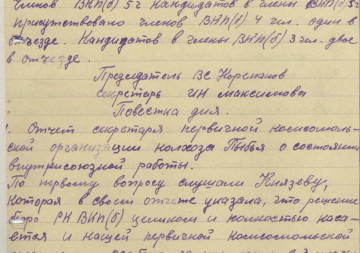 членов ВКП(б) 5 ч кандидатов в члены ВКП(б) 5 ч
присутствовало членов ВКП(б) 4 чел. один в
отъезде. Кандидатов в члены ВКП(б) 3 чел. двое
в отъезде.
Председатель ВС Корепанов
Секретарь ИН Максимова
Повестка дня.
1. Отчет секретаря первичной комсомоль-
ской организации колхоза о состоянии
внутрисоюзной работы.
По первому вопросу слушали Князеву,
которая в своем отчете указала, что решение
бюро РК ВКП(б) целиком и полностью каса-
ется и нашей первичной комсомольской